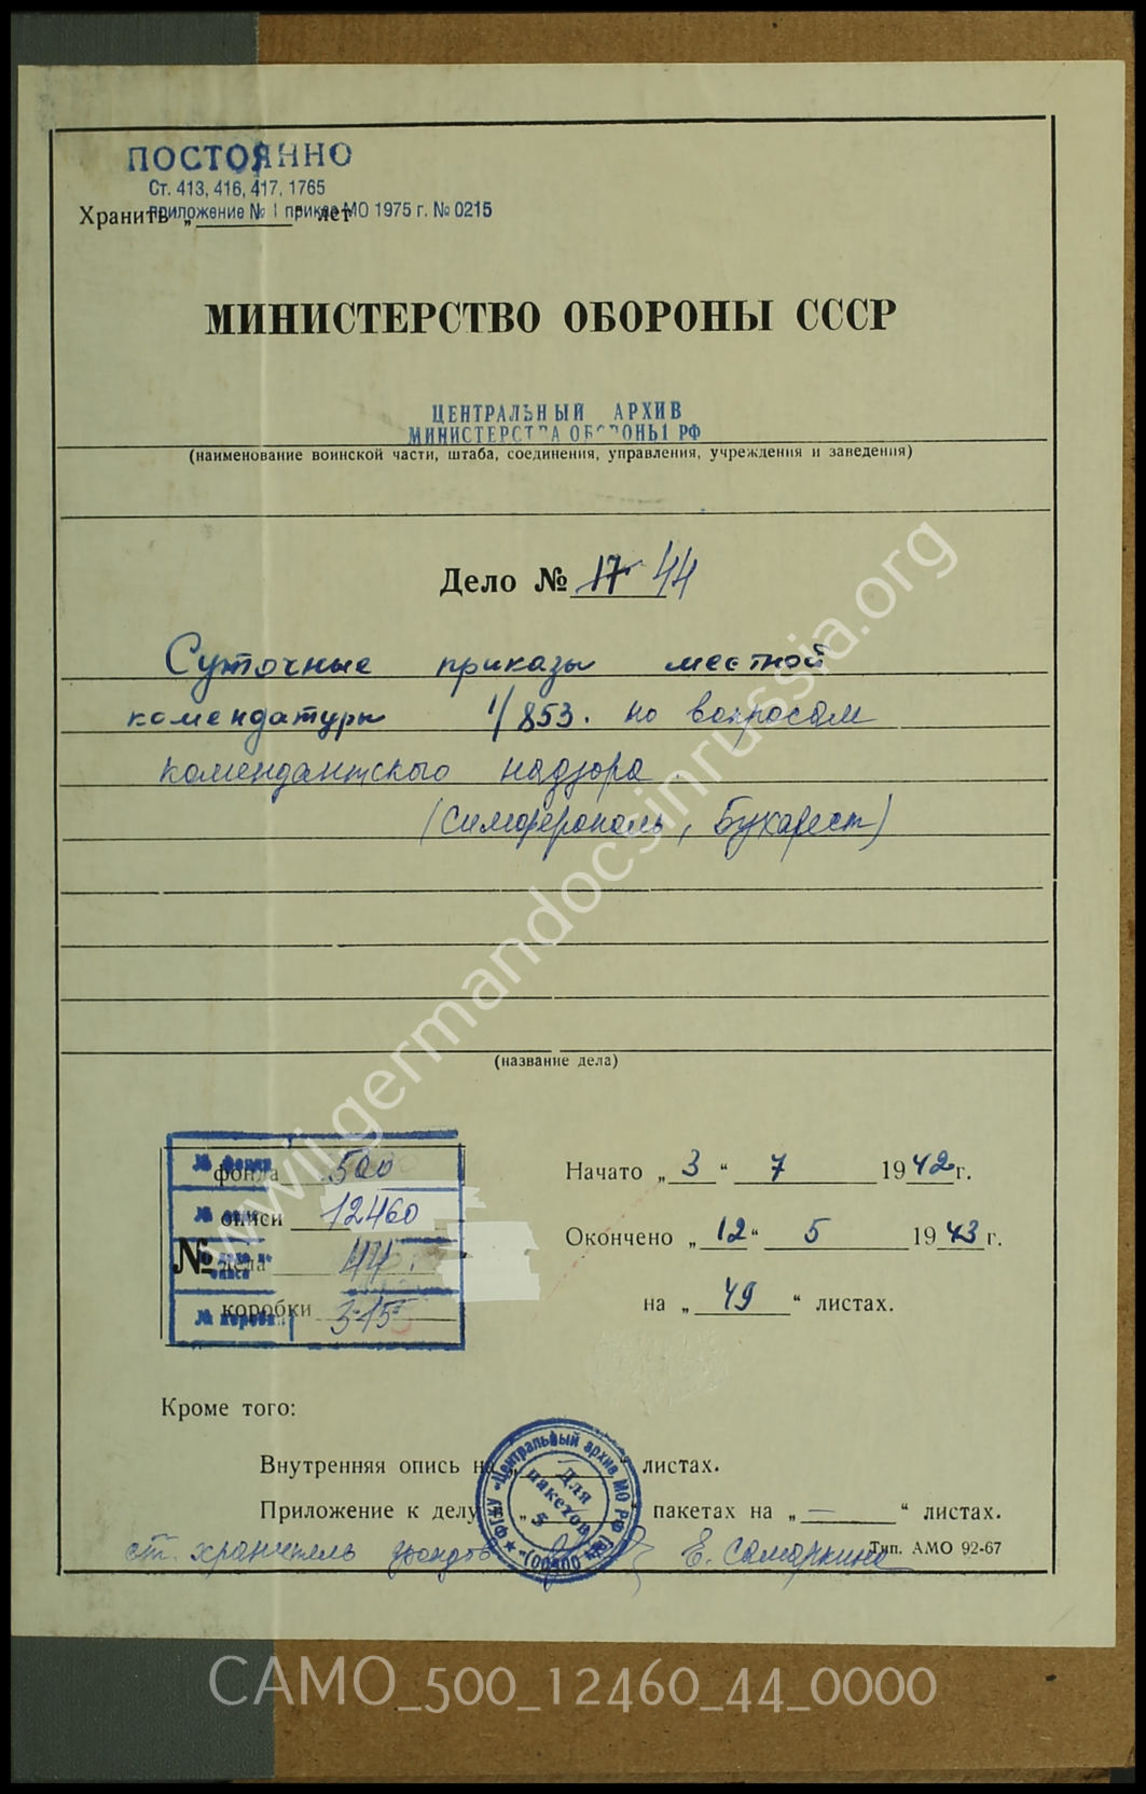 ПОСТОЯННО
Ст. 413, 416, 417, 1765
приложение № 1 приказ МО 1975 г. № 0215
Хранить „ “ лет
МИНИСТЕРСТВО ОБОРОНЫ СССР
ЦЕНТРАЛЬНЫЙ АРХИВ
МИНИСТЕРСТВА ОБОРОНЫ РФ
(наименование воинской части, штаба, соединения, управления, учреждения и заведения)
Дело № 17 44
Суточные приказы местной
комендатуры 1/853. по вопросам
комендантского надзора.
(Симферополь, Бухарест)
(название дела)
№ фонда 500
№ описи 12460
№ дела 44
№ коробки 315
Начато „ 3 “ 7 1942 г.
Окончено „ 12 “ 5 1943 г.
на „ 49 “ листах.
Кроме того:
Внутренняя опись на „ — листах.
Приложение к делу „ “ пакетах на „ — “ листах.
ст. хранитель фондов Е. Самаркина
Тип. АМО 92-67
ФГКУ «Центральный архив МО РФ
Для пакетов 5
wwii.germandocsinrussia.org
CAMO_500_12460_44_0000